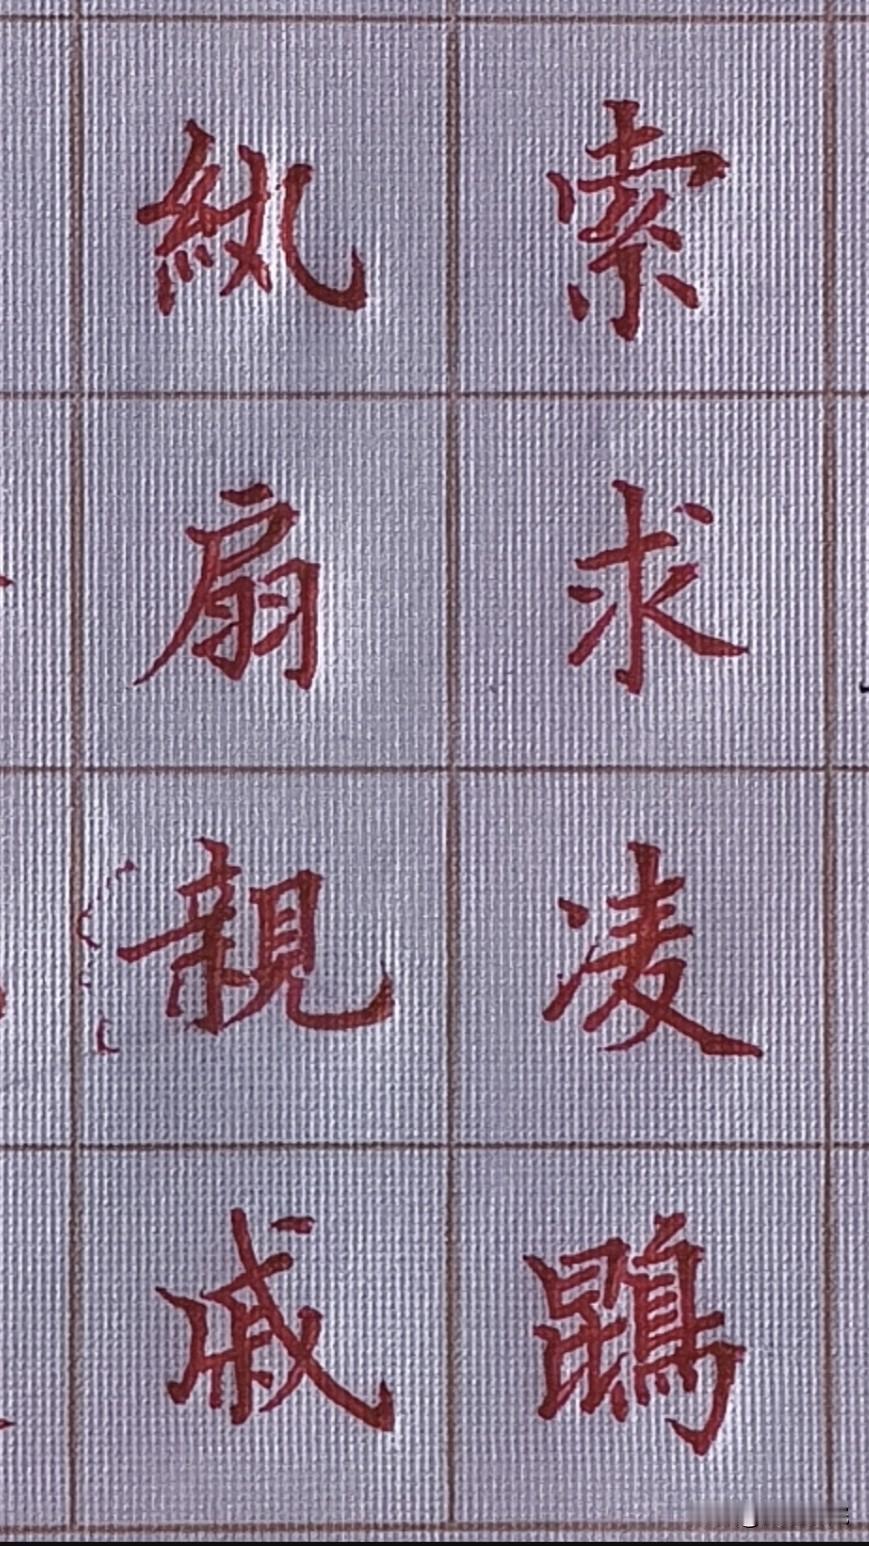 索求凌鵾
紈扇親戚